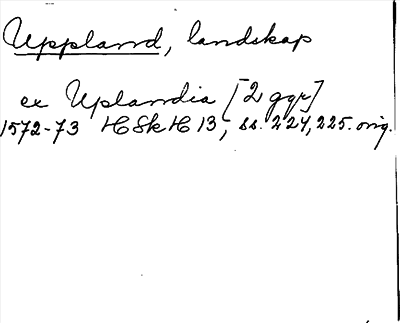 Uppland, landskap
ex Uplandia [2 ggr]
1572-73 HSkH 13, ss. 224, 225. orig.